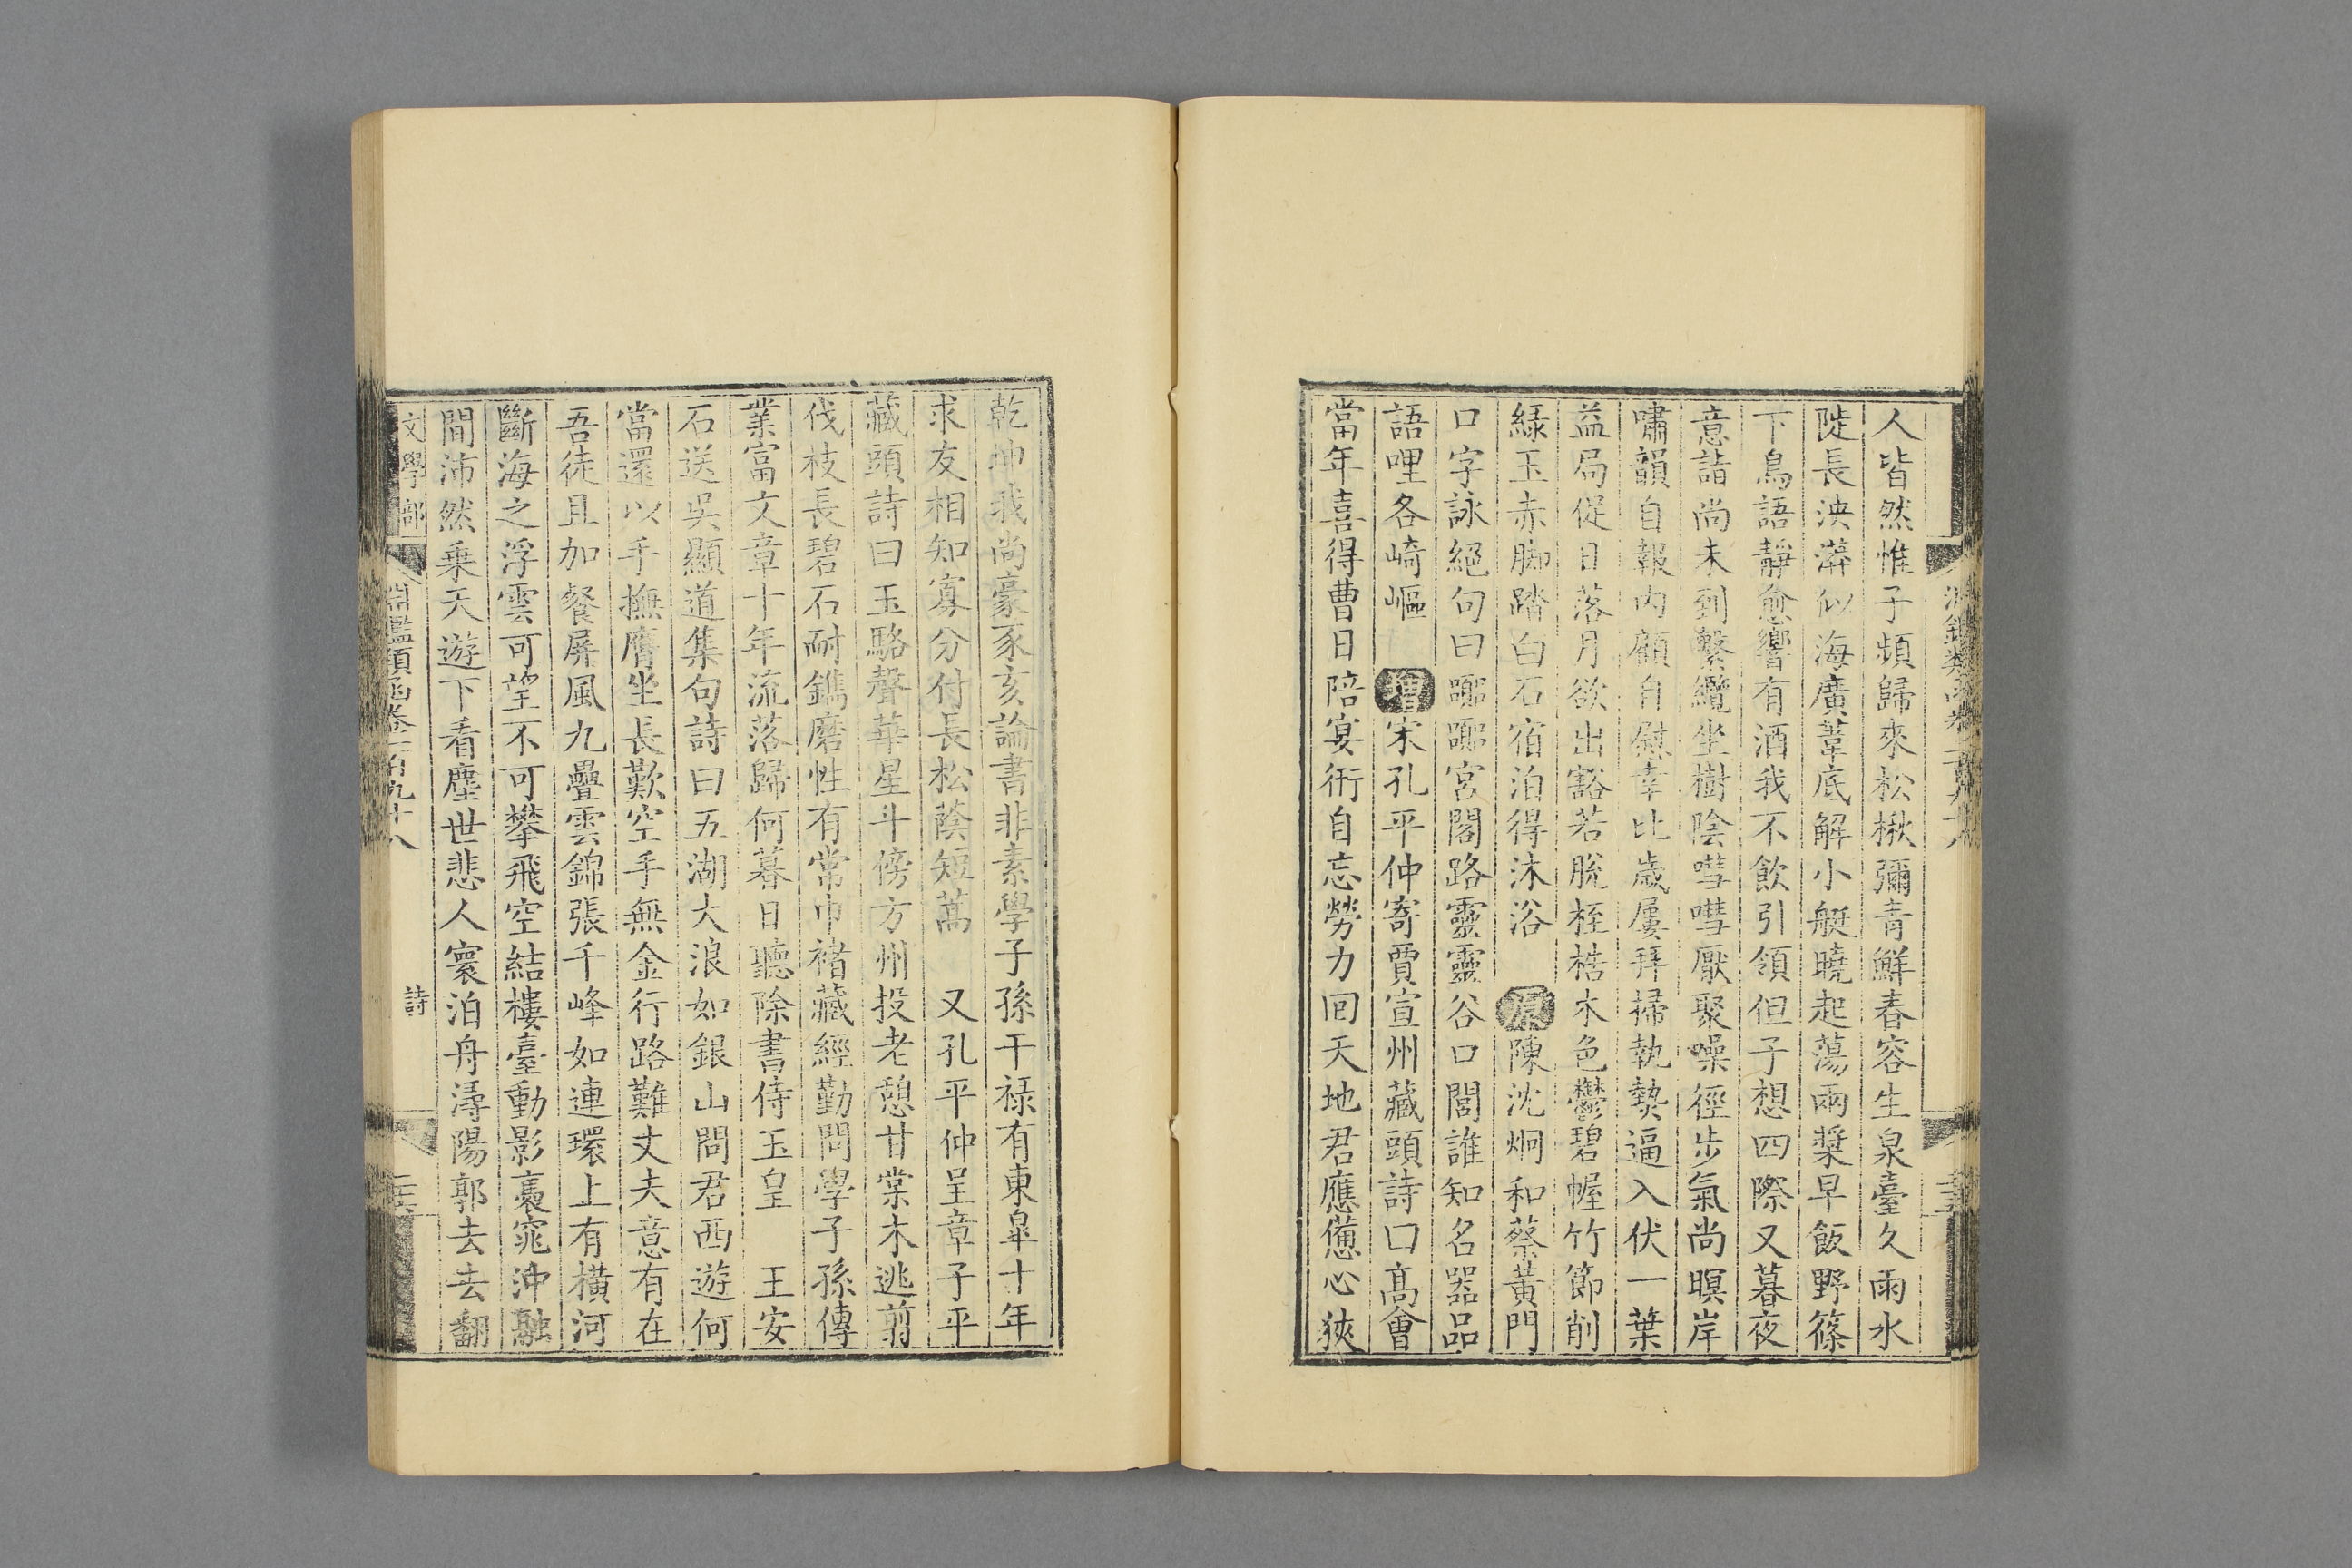 人皆然惟子頻歸來松楸彌青鮮春容生泉臺久雨水
陡長泱漭似海廣葦底解小艇曉起蕩兩槳早飯野篠
下鳥語靜愈響有酒我不飲引領但子想四際又暮夜
意詣尚未到繫纜坐樹陰嘒嘒厭聚噪徑步氣尚暝岸
嘯韻自報內顧自慰幸比歲屢拜掃執熱逼入伏一葉
益局促日落月欲出豁若脫桎梏木色鬱碧幄竹節削
綠玉赤脚踏白石宿泊得沐浴 原陳沈炯和蔡黃門
口字詠絕句曰嚻嚻宮閣路靈靈谷口閭誰知名器品
語哩各崎嶇 增宋孔平仲寄賈宣州藏頭詩口高會
當年喜得曹日陪宴衎自忘勞力囘天地君應憊心狹
乾坤我尚豪豕亥論書非素學子孫干祿有東臯十年
求友相知寡分付長松蔭短蒿 又孔平仲呈章子平
藏頭詩曰玉駱聲華星斗傍方州投老憩甘棠木逃剪
伐枝長碧石耐鐫磨性有常巾褚藏經勤問學子孫傳
業富文章十年流落歸何暮日聽除書侍玉皇 王安
石送吳顯道集句詩曰五湖大浪如銀山問君西遊何
當還以手撫膺坐長歎空手無金行路難丈夫意有在
吾徒且加餐屏風九疊雲錦張千峰如連環上有橫河
斷海之浮雲可望不可攀飛空結樓臺動影裊窕沖融
間沛然乘天遊下看塵世悲人寰泊舟潯陽郭去去翻
文學部 淵鑑類函卷一百九十八 詩